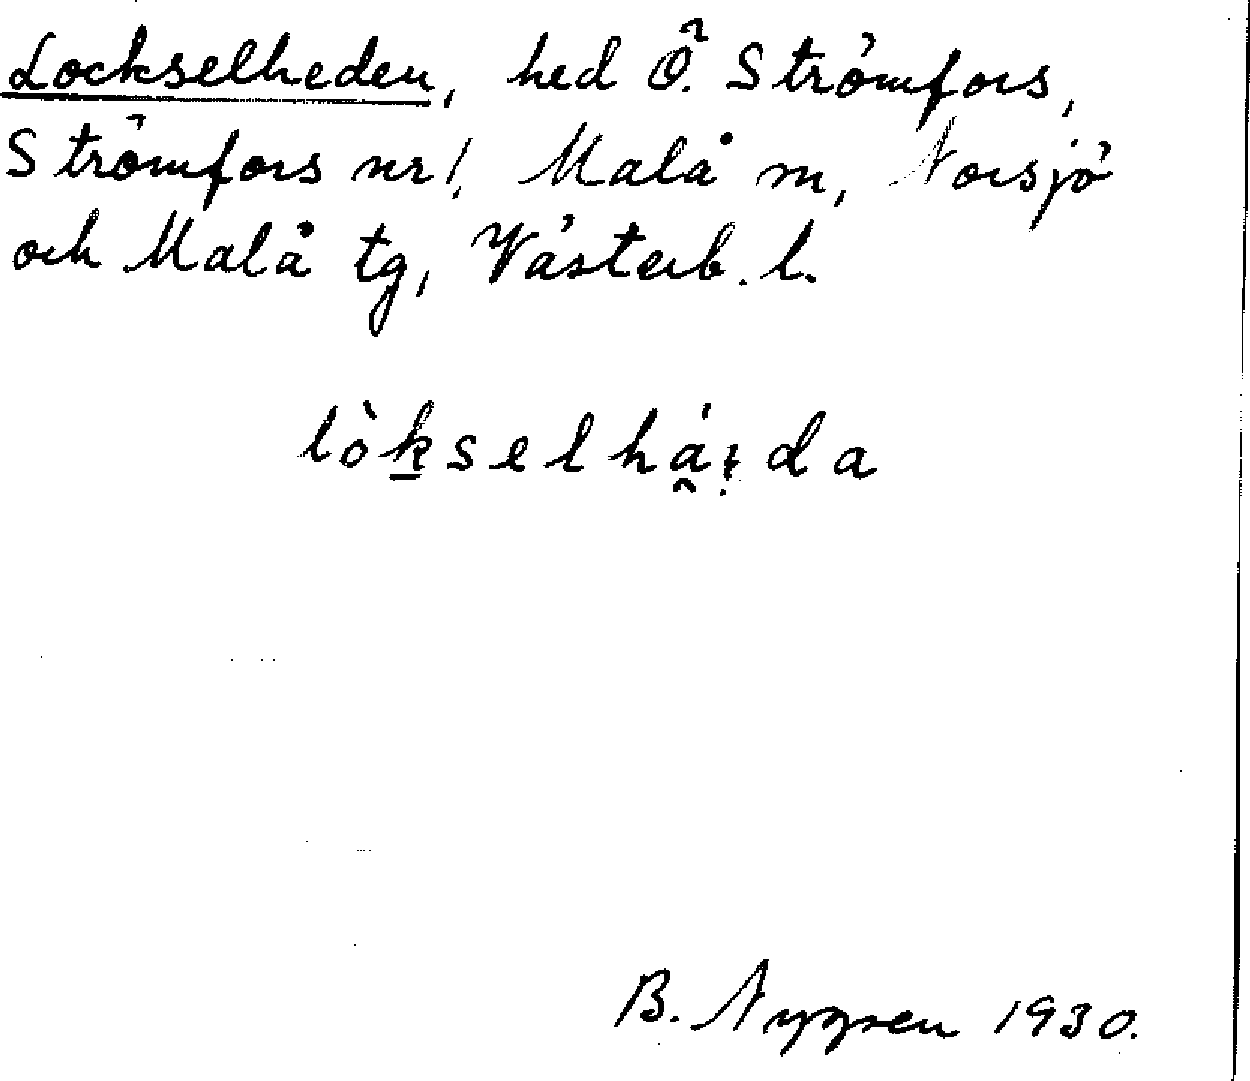 Lockselheden, hed Ö. Strömfors,
Strömfors nr 1, Malå m, Norsjö
och Malå tg, Västerb. l.
B. Nygren 1930.